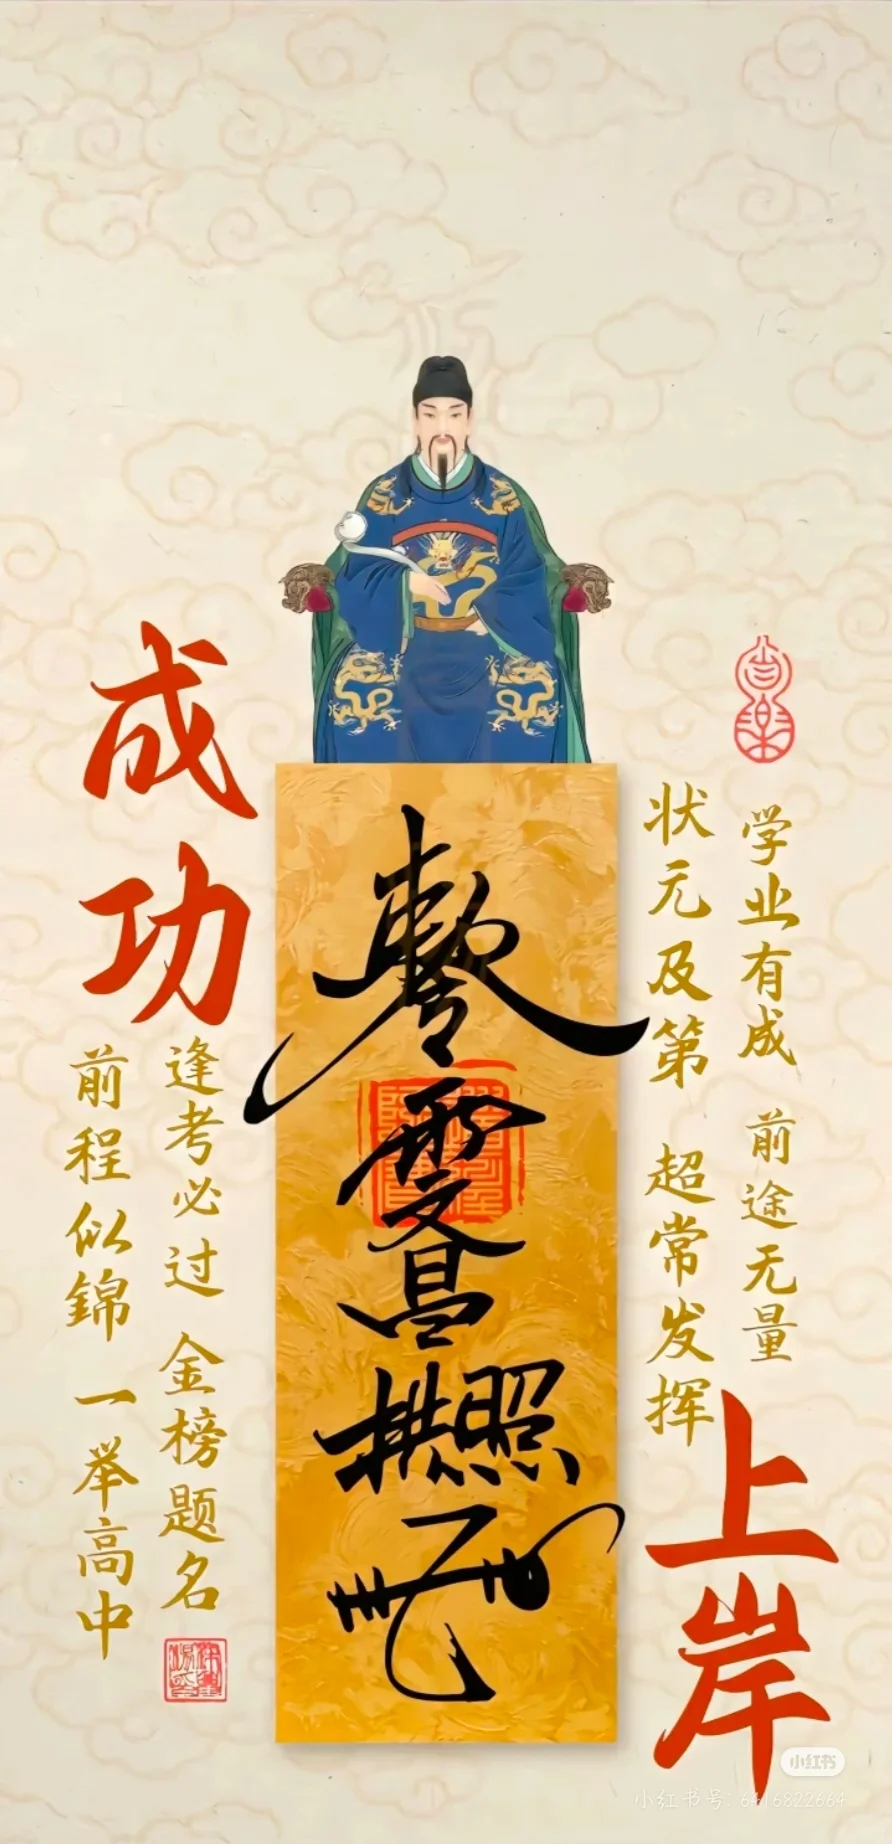 学业有成 前途无量
状元及第 超常发挥
上岸
文昌拱照
成功
逢考必过 金榜题名
前程似錦 一举高中
小红书
小红书号: 6416822664